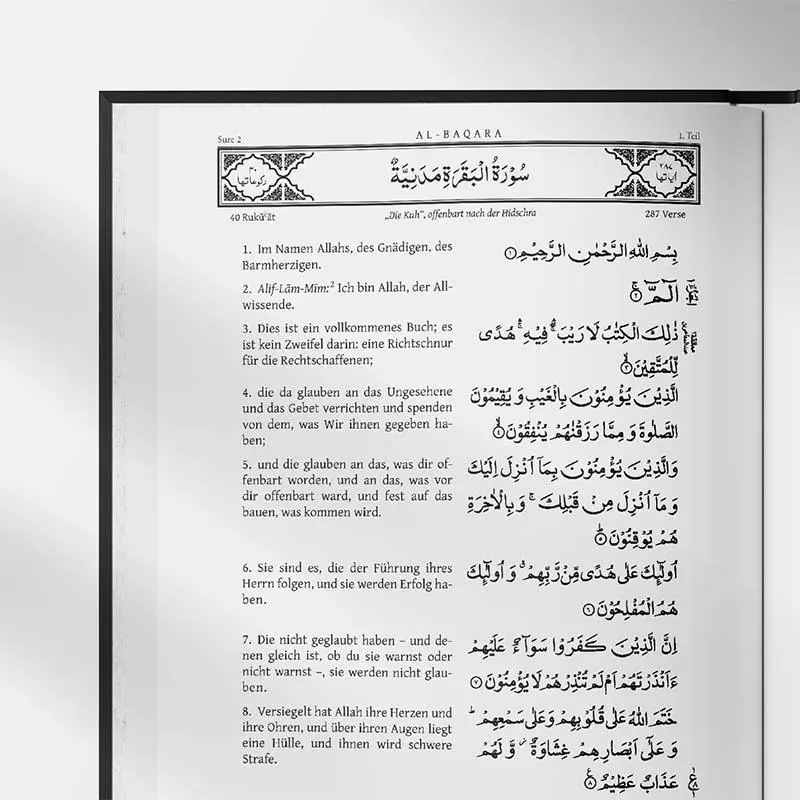 Sure 2
AL-BAQARA
1. Teil
٤٠
رکوعاتها
سُوۡرَةُ الۡبَقَرَةِ مَدَنِيَّةٌ
٢٨٧
اٰياتها
40 Rukūʿāt
„Die Kuh“, offenbart nach der Hidschra
287 Verse
1. Im Namen Allahs, des Gnädigen, des
Barmherzigen.
بِسۡمِ اللّٰهِ الرَّحۡمٰنِ الرَّحِيۡمِ ﴿۱﴾
2. Alif-Lām-Mīm:² Ich bin Allah, der All-
wissende.
الٓـمّٓ ﴿۲﴾
3. Dies ist ein vollkommenes Buch; es
ist kein Zweifel darin: eine Richtschnur
für die Rechtschaffenen;
ذٰلِكَ الۡكِتٰبُ لَا رَيۡبَ ۛۖ فِيۡهِ ۛۚ هُدًى
لِّلۡمُتَّقِيۡنَ ﴿۳﴾
4. die da glauben an das Ungesehene
und das Gebet verrichten und spenden
von dem, was Wir ihnen gegeben ha-
ben;
الَّذِيۡنَ يُؤۡمِنُوۡنَ بِالۡغَيۡبِ وَ يُقِيۡمُوۡنَ
الصَّلٰوةَ وَ مِمَّا رَزَقۡنٰهُمۡ يُنۡفِقُوۡنَ ﴿۴﴾
5. und die glauben an das, was dir of-
fenbart worden, und an das, was vor
dir offenbart ward, und fest auf das
bauen, was kommen wird.
وَالَّذِيۡنَ يُؤۡمِنُوۡنَ بِمَاۤ اُنۡزِلَ اِلَيۡكَ
وَ مَاۤ اُنۡزِلَ مِنۡ قَبۡلِكَ ۚ وَ بِالۡاٰخِرَةِ
هُمۡ يُوۡقِنُوۡنَ ﴿۵﴾
6. Sie sind es, die der Führung ihres
Herrn folgen, und sie werden Erfolg ha-
ben.
اُولٰٓئِكَ عَلٰى هُدًى مِّنۡ رَّبِّهِمۡ ۙ وَ اُولٰٓئِكَ
هُمُ الۡمُفۡلِحُوۡنَ ﴿۶﴾
7. Die nicht geglaubt haben – und de-
nen gleich ist, ob du sie warnst oder
nicht warnst –, sie werden nicht glau-
ben.
اِنَّ الَّذِيۡنَ كَفَرُوۡا سَوَآءٌ عَلَيۡهِمۡ
ءَاَنۡذَرۡتَهُمۡ اَمۡ لَمۡ تُنۡذِرۡهُمۡ لَا يُؤۡمِنُوۡنَ ﴿۷﴾
8. Versiegelt hat Allah ihre Herzen und
ihre Ohren, und über ihren Augen liegt
eine Hülle, und ihnen wird schwere
Strafe.
خَتَمَ اللّٰهُ عَلٰى قُلُوۡبِهِمۡ وَ عَلٰى سَمۡعِهِمۡ ؕ
وَ عَلٰۤى اَبۡصَارِهِمۡ غِشَاوَةٌ ۫ وَّ لَهُمۡ
عَذَابٌ عَظِيۡمٌ ﴿۸﴾